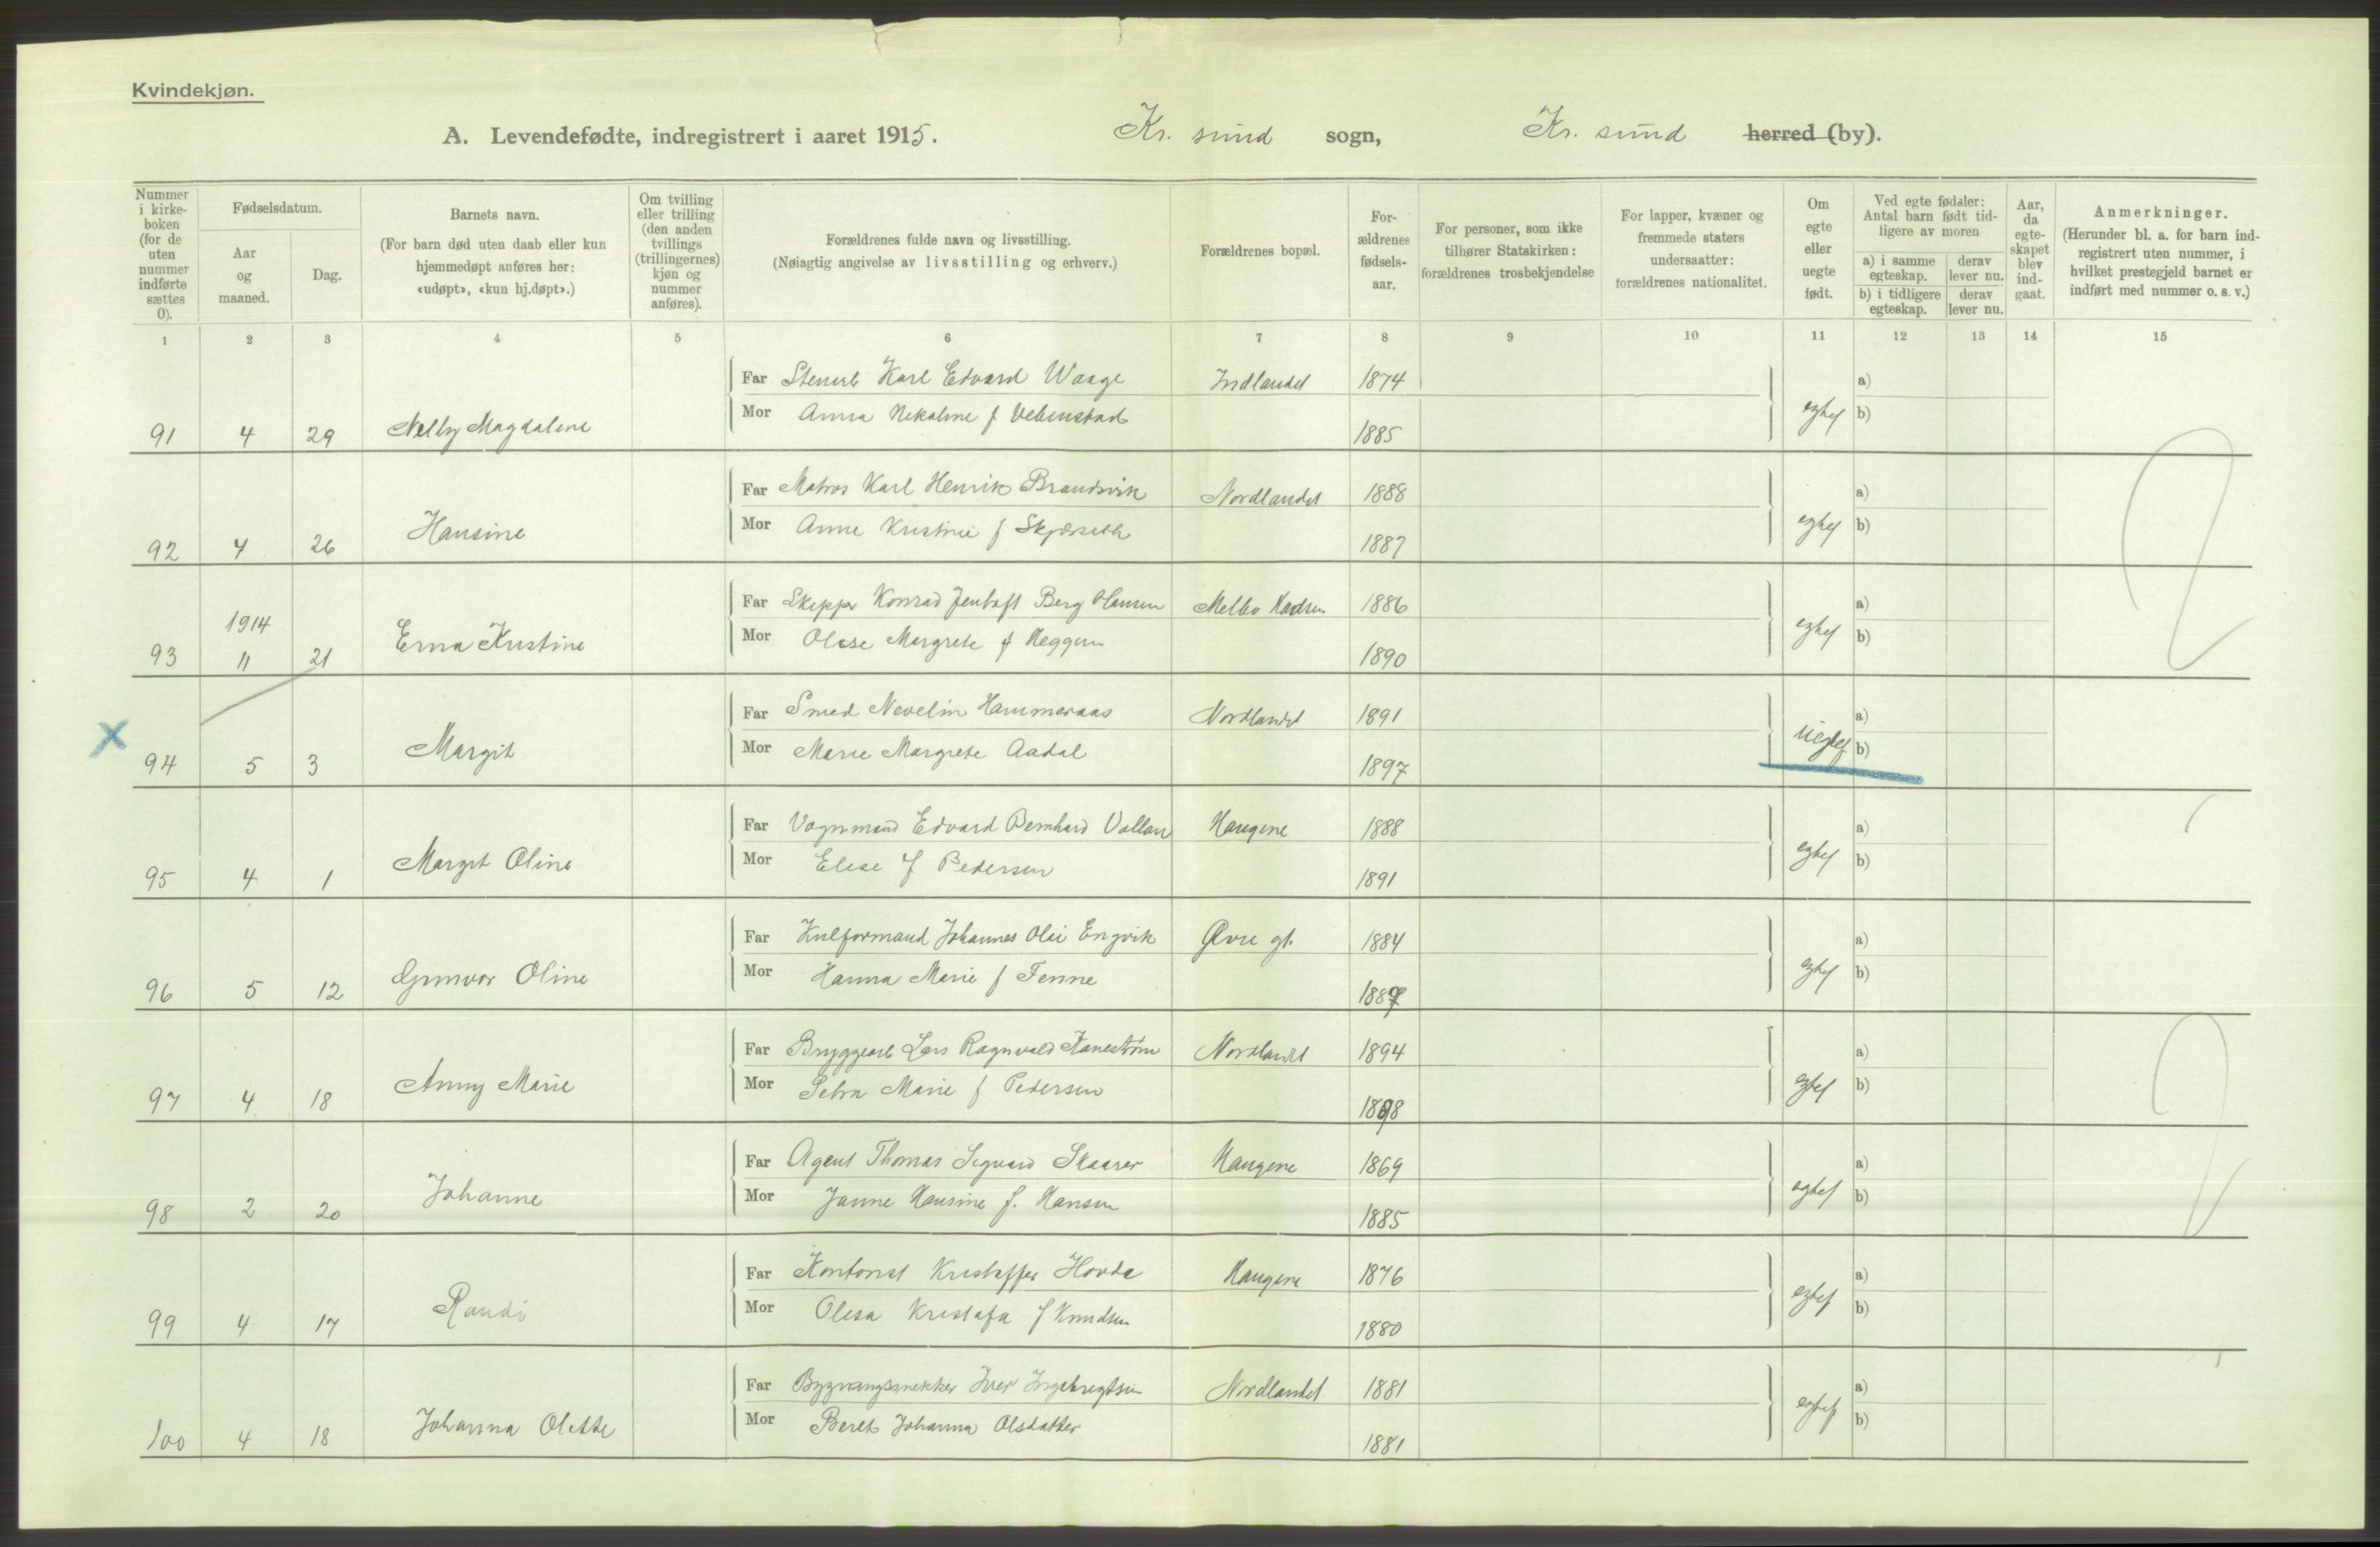 Kvindekjøn.
A. Levendefødte, indregistrert i aaret 1915. Kr. sund sogn, Kr. sund herred (by).
Nummer i kirkeboken (for de uten nummer indførte sættes 0).
Fødselsdatum.
Aar og maaned.
Dag.
Barnets navn.
(For barn død uten daab eller kun hjemmedøpt anføres her: «udøpt», «kun hj.døpt».)
Om tvilling eller trilling (den anden tvillings (trillingernes) kjøn og nummer anføres).
Forældrenes fulde navn og livsstilling.
(Nøiagtig angivelse av livsstilling og erhverv.)
Forældrenes bopæl.
For-ældrenes fødsels-aar.
For personer, som ikke tilhører Statskirken: forældrenes trosbekjendelse
For lapper, kvæner og fremmede staters undersaatter: forældrenes nationalitet.
Om egte eller uegte født.
Ved egte fødsler: Antal barn født tid-ligere av moren
a) i samme egteskap. derav lever nu.
b) i tidligere egteskap. derav lever nu.
Aar, da egte-skapet blev ind-gaat.
Anmerkninger.
(Herunder bl. a. for barn ind-registrert uten nummer, i hvilket prestegjeld barnet er indført med nummer o. s. v.)
1 2 3 4 5 6 7 8 9 10 11 12 13 14 15
Far Karl Edvard Waage Indlandet 1874 a)
91 4 29 Nelly Magdalene Mor Anna f 1885 egtef b)
Far Matros Karl Henrik Brandvik Nordlandet 1888 a)
92 4 26 Hansine Mor Anne Kristine f Skjærseth 1887 egtef b)
Far Skipper Konrad Jentoft Berg Hansen Melbo Hadsen 1886 a)
1914
93 11 21 Erna Kristine Mor Margrete f Heggen 1890 egtef b)
Far Smed Nevelin Hammeraas Nordlandet 1891 a)
X 94 5 3 Margit Mor Marie Margrete Aadal 1897 uegtef b)
Far Vognmand Edvard Bernhard Vollan Haugene 1888 a)
95 4 1 Margit Oline Mor Elise f Pedersen 1891 egtef b)
Far Kulformand Johannes Olai Engvik Øvre gt. 1884 a)
96 5 12 Gunvor Oline Mor Hanna Marie f Fenne 1887 egtef b)
Far Bryggearb Lars Ragnvald Kanestrøm Nordlandet 1894 a)
97 4 18 Anny Marie Mor Petra Marie f Pedersen 1898 egtef b)
Far Agent Thomas Sigvard Skaarer Haugene 1869 a)
98 2 20 Johanne Mor Janne Hansine f. Hansen 1885 egtef b)
Far Kontorist Kristoffer Hovde Haugene 1876 a)
99 4 17 Randi Mor Olesa Kristofa f Knudsen 1880 egtef b)
Far Bygningssnekker Iver Ingebregtsen Nordlandet 1881 a)
100 4 18 Johanna Olette Mor Beret Johanna Olsdatter 1881 egtef b)